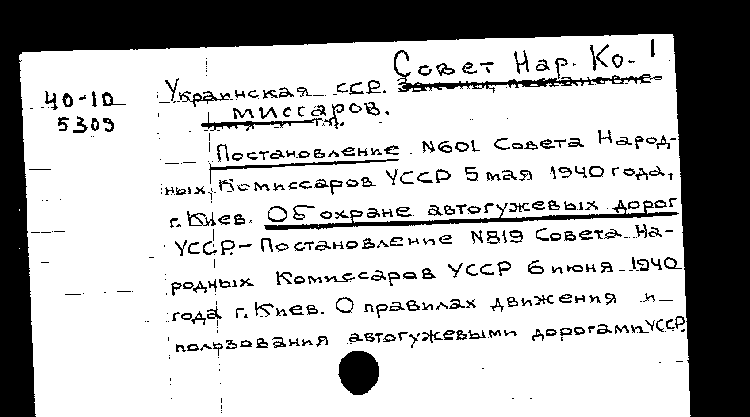 Совет Нар. Ко- 1
40-10 Украинская ССР. Законы, постановле-
5309 миссаров.
ния и т.д.
Постановление N601 Совета Народ-
ных Комиссаров УССР 5 мая 1940 года,
г. Киев. Об охране автогужевых дорог
УССР.- Постановление N819 Совета На-
родных Комиссаров УССР 6 июня 1940
года г. Киев. О правилах движения и
пользования автогужевыми дорогами УССР.